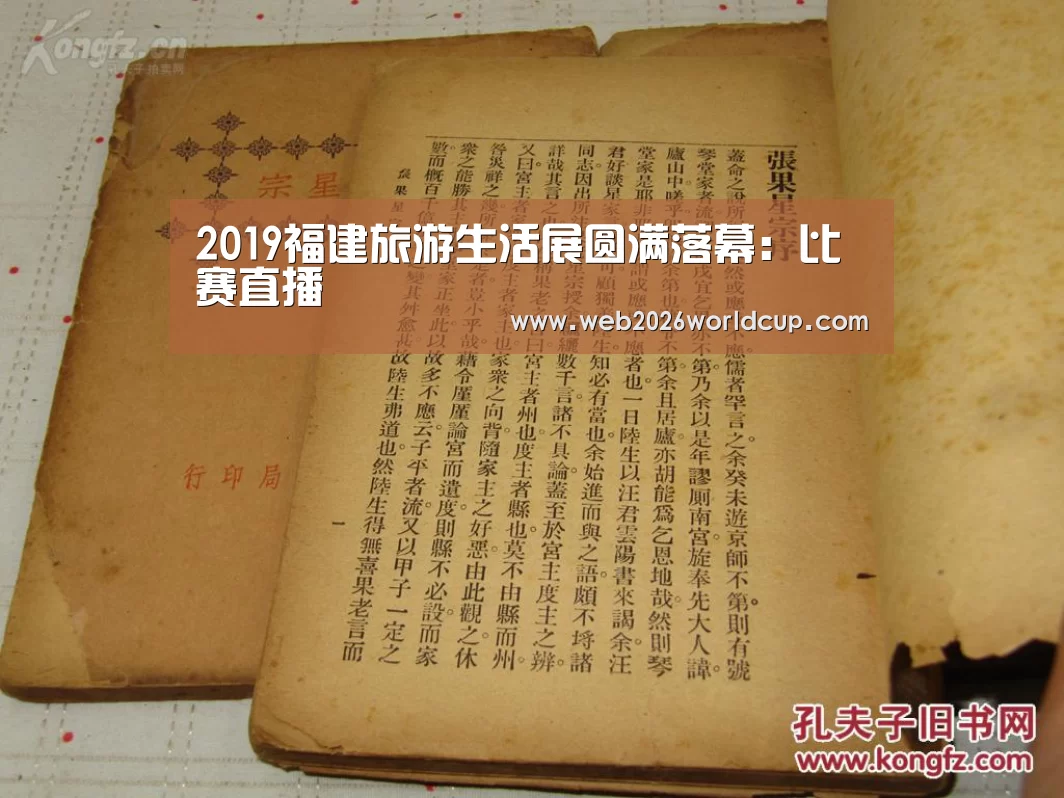 Kongfz.cn
孔夫子拍卖网
星宗
局印行
2019福建旅游生活展圆满落幕：比
赛直播
www.web2026worldcup.com
張果星宗序
蓋命之說所
然或應
不應儒者罕言之余癸未遊京師不第則有號
琴堂家者流
戌宜乞
亦不第乃余以是年謬厠南宮旌奉先大人諱
廬山中嗟乎
余第也
不第余且居廬亦胡能爲乞恩地哉然則琴
堂家是耶非耶
謂或應
不應者也一日陸生以汪君雲陽書來謁余汪
君好談星家
可顧獨
生知必有當也余始進而與之語頗不埒諸
同志因出所注
星宗授余
纚數千言諸不具論蓋至於宮主度主之辨
詳哉其言之也
稱果老
曰宮主者州也度主者縣也莫不由縣而州
又曰宮主者家
度主者家主也家衆之向背隨家主之好惡由此觀之休
咎災祥之
是者豈小乎哉藉令廑廑論宮而遺度則縣不必設而家
衆之能勝其主
家正坐此以故多不應云子平者流又以甲子一定之
數而概百千億
之變其舛愈甚故陸生弗道也然陸生得無喜果老言而
張果星
一
孔夫子旧书网
www.kongfz.com